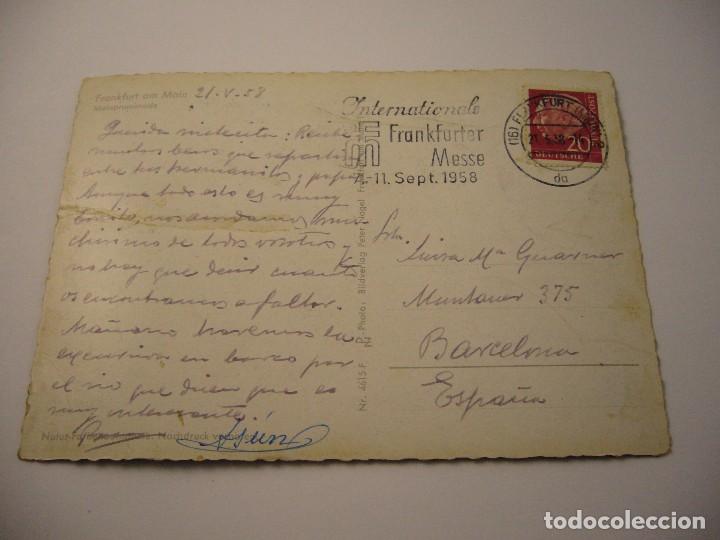 Frankfurt am Main 21-V-58
Mainpromenade
Querida nietecita: Recibe
muchos besos que repartirás
entre tus hermanitos y papas
Aunque todo esto es muy
bonito, nos acordamos mu-
chisimo de todos vosotros y
no hay que decir cuanto
os encontramos a faltar.
Mañana haremos la
excursion en barco por
el rio que dicen que es
muy interesante.
Asún
Hochdruck
Nr. 4615 F. Photo: Bildverlag Peter
Internationale
Frankfurter
Messe
7.-11. Sept. 1958
(16) FRANKFURT
21.5.58
da
20
DEUTSCHE
Srta.
Luisa Mª Guarner
Muntaner 375
Barcelona
España
todocoleccion
todocoleccion.net